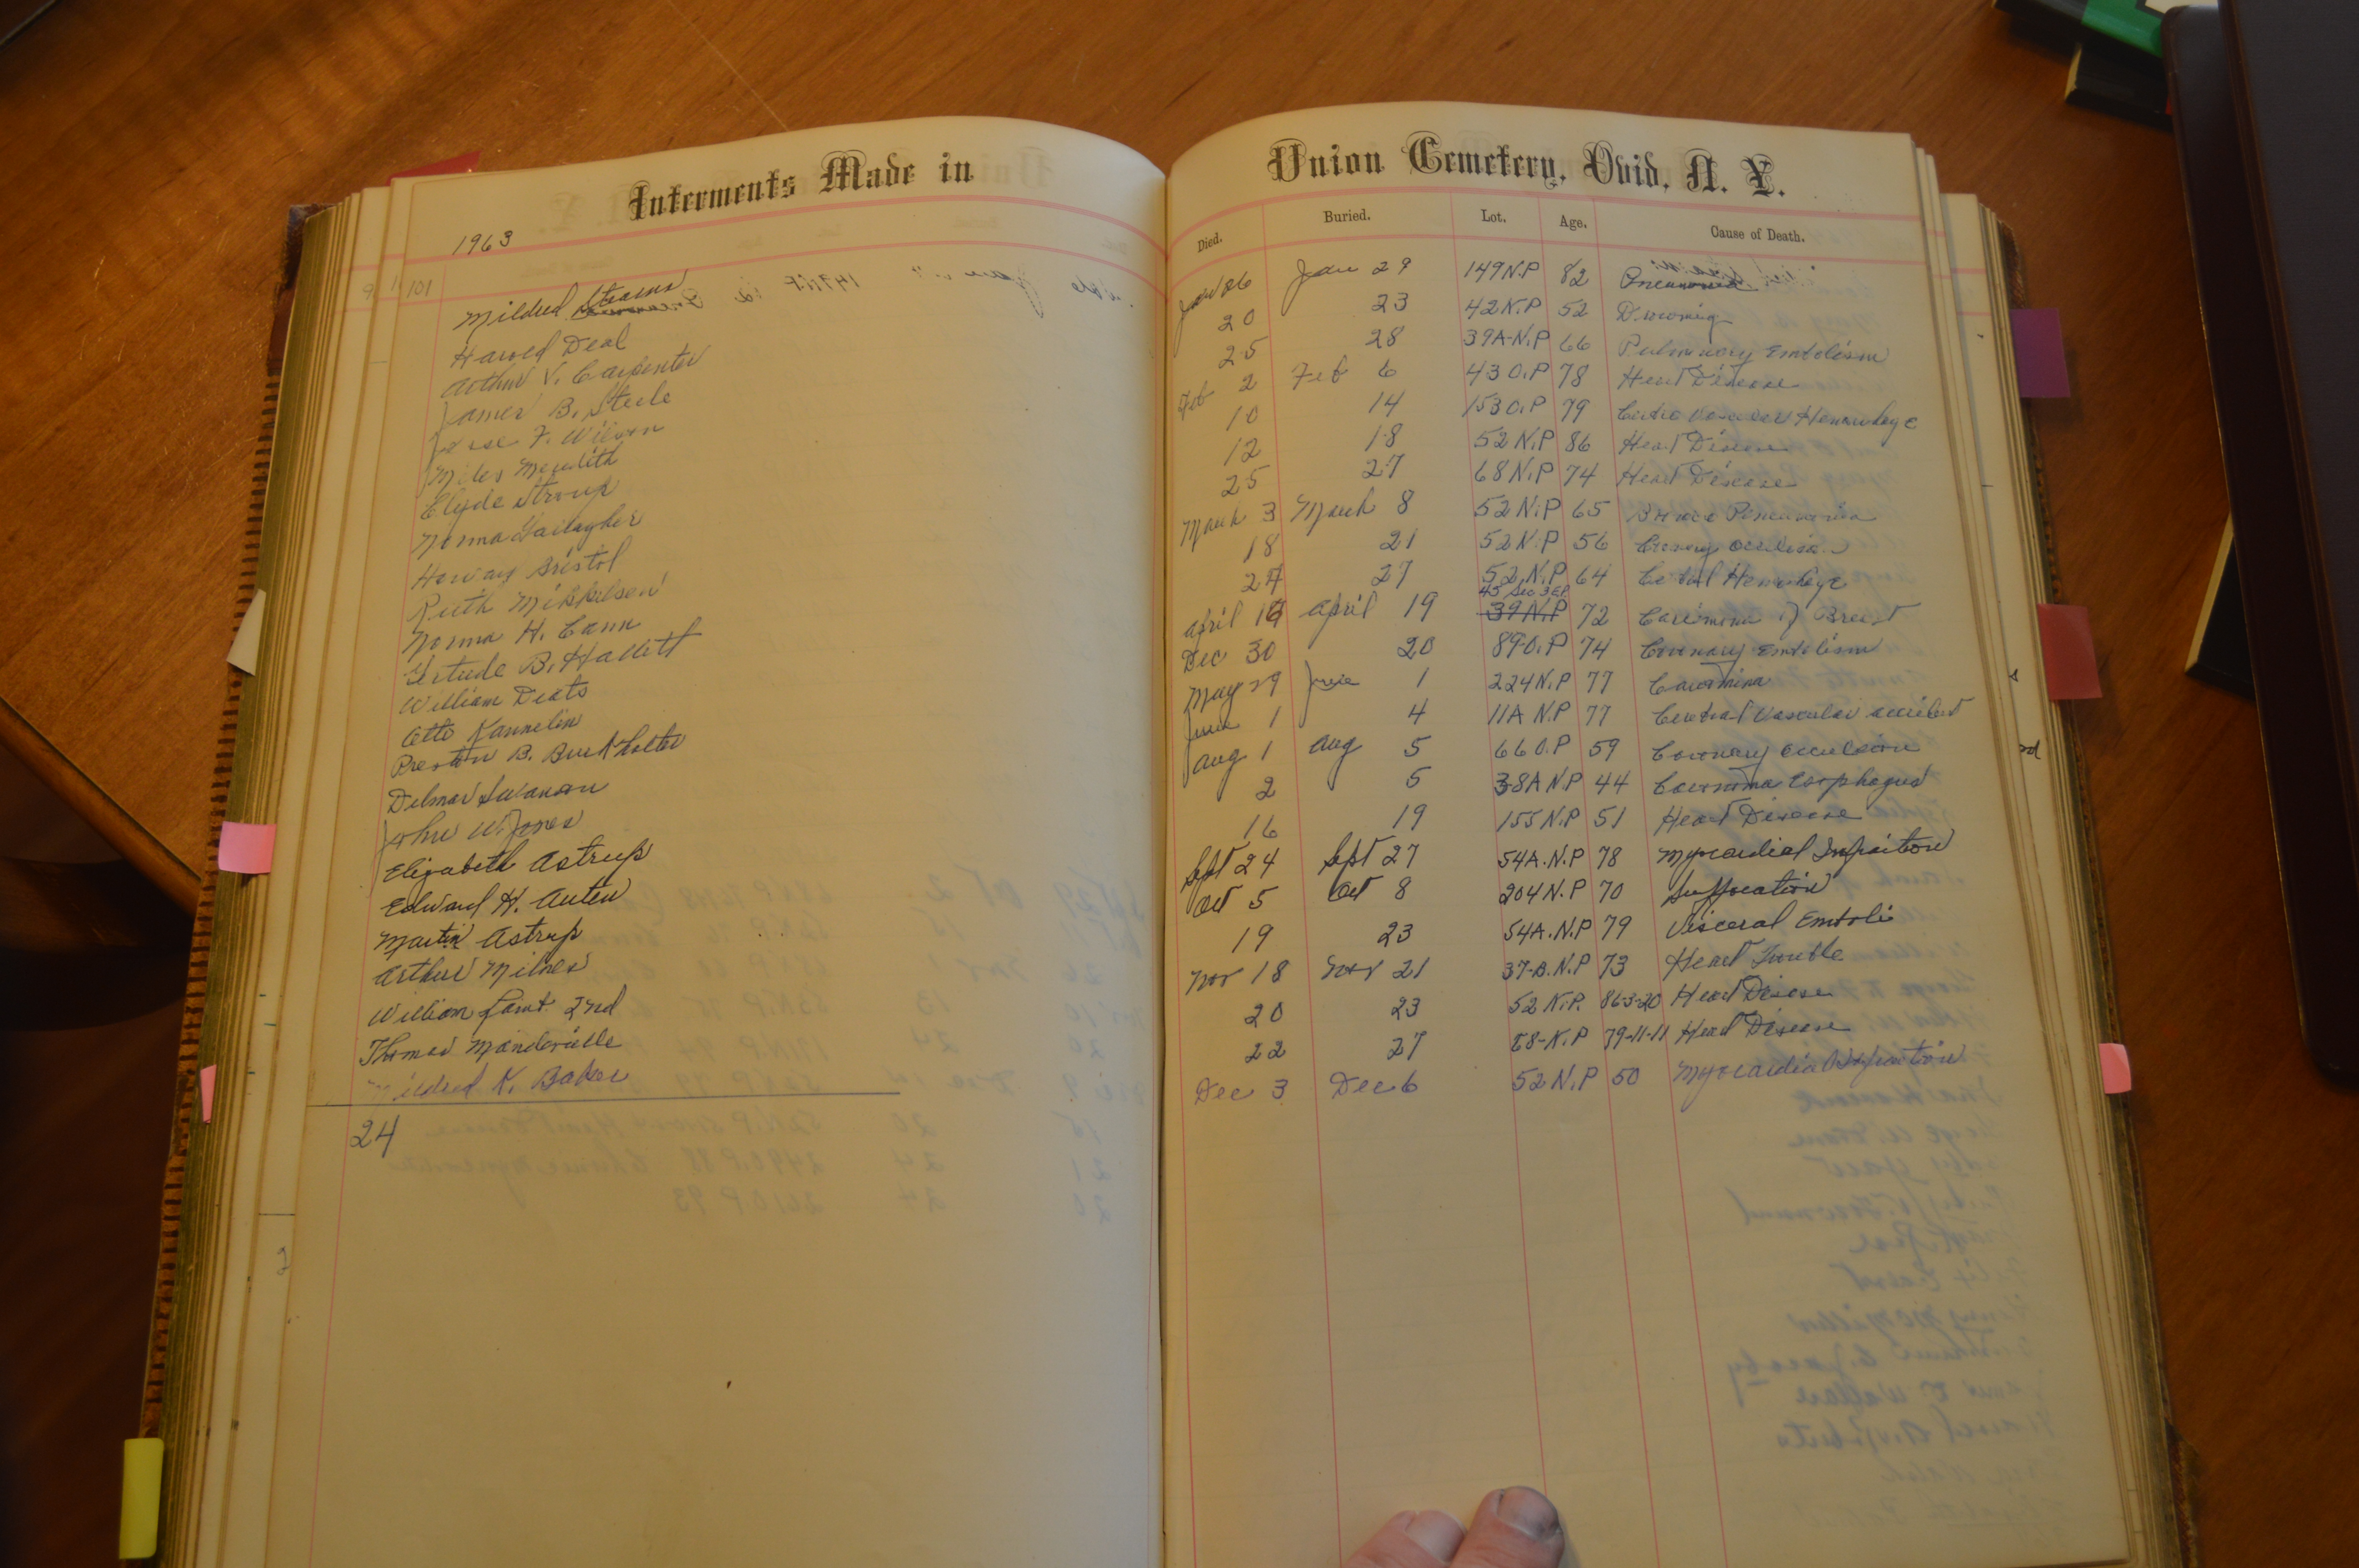 Interments Made in
Union Cemetery, Ovid, N. Y.
1963
Died. Buried. Lot. Age. Cause of Death.
101
Mildred Stearns Jan 26 Jan 29 149 N.P 82 Pneumonia
Harold Deal 20 23 42 N.P 52 Drowning
Arthur V. Carpenter 25 28 39A-N.P 66 Pulminary Embolism
James B. Steele Feb 2 Feb 6 43 O.P 78 Heart Disease
Jesse F. Wilson 10 14 153 O.P 79 Hemorrhage
Miles Meredith 12 18 52 N.P 86 Heart Disease
Clyde Stroup 25 27 68 N.P 74 Heart Disease
Norma Gallagher March 3 March 8 52 N.P 65
Harvey Bristol 18 21 52 N.P 56
Ruth Mikkelsen 24 27 52 N.P 64
Norma H. Cann April April 19 45 Sec 3 39 N.P 72 of Breast
Gertude B. Hallett Dec 30 20 89 O.P 74 Coronary Embolism
William Deats May 29 June 1 224 N.P 77 Carcinoma
Otto Kannelin June 1 4 11A N.P 77 Cerebral Vascular accident
Preston B. Burkholter Aug 1 Aug 5 66 O.P 59 Coronary occulsion
Delmar Swanson 2 5 38A N.P 44 Carcinoma Esophagus
John W. Jones 16 19 155 N.P 51 Heart Disease
Elizabeth Astrup Sept 24 Sept 27 54A.N.P 78 Myrcardial Infraction
Edward H. Auten Oct 5 Oct 8 204 N.P 70 Suffocation
Martin Astrup 19 23 54A.N.P 79 Visceral Emboli
Arthur Milnes Nov 18 Nov 21 37-B.N.P 73 Heart Trouble
William 2nd 20 23 52 N.P. 86-3-20 Heart Disease
Thomas Manderville 22 27 N.P 79-11-11 Heart Disease
Mildred K. Baker Dec 3 Dec 6 52 N.P 50 Myrcardial Infraction
24